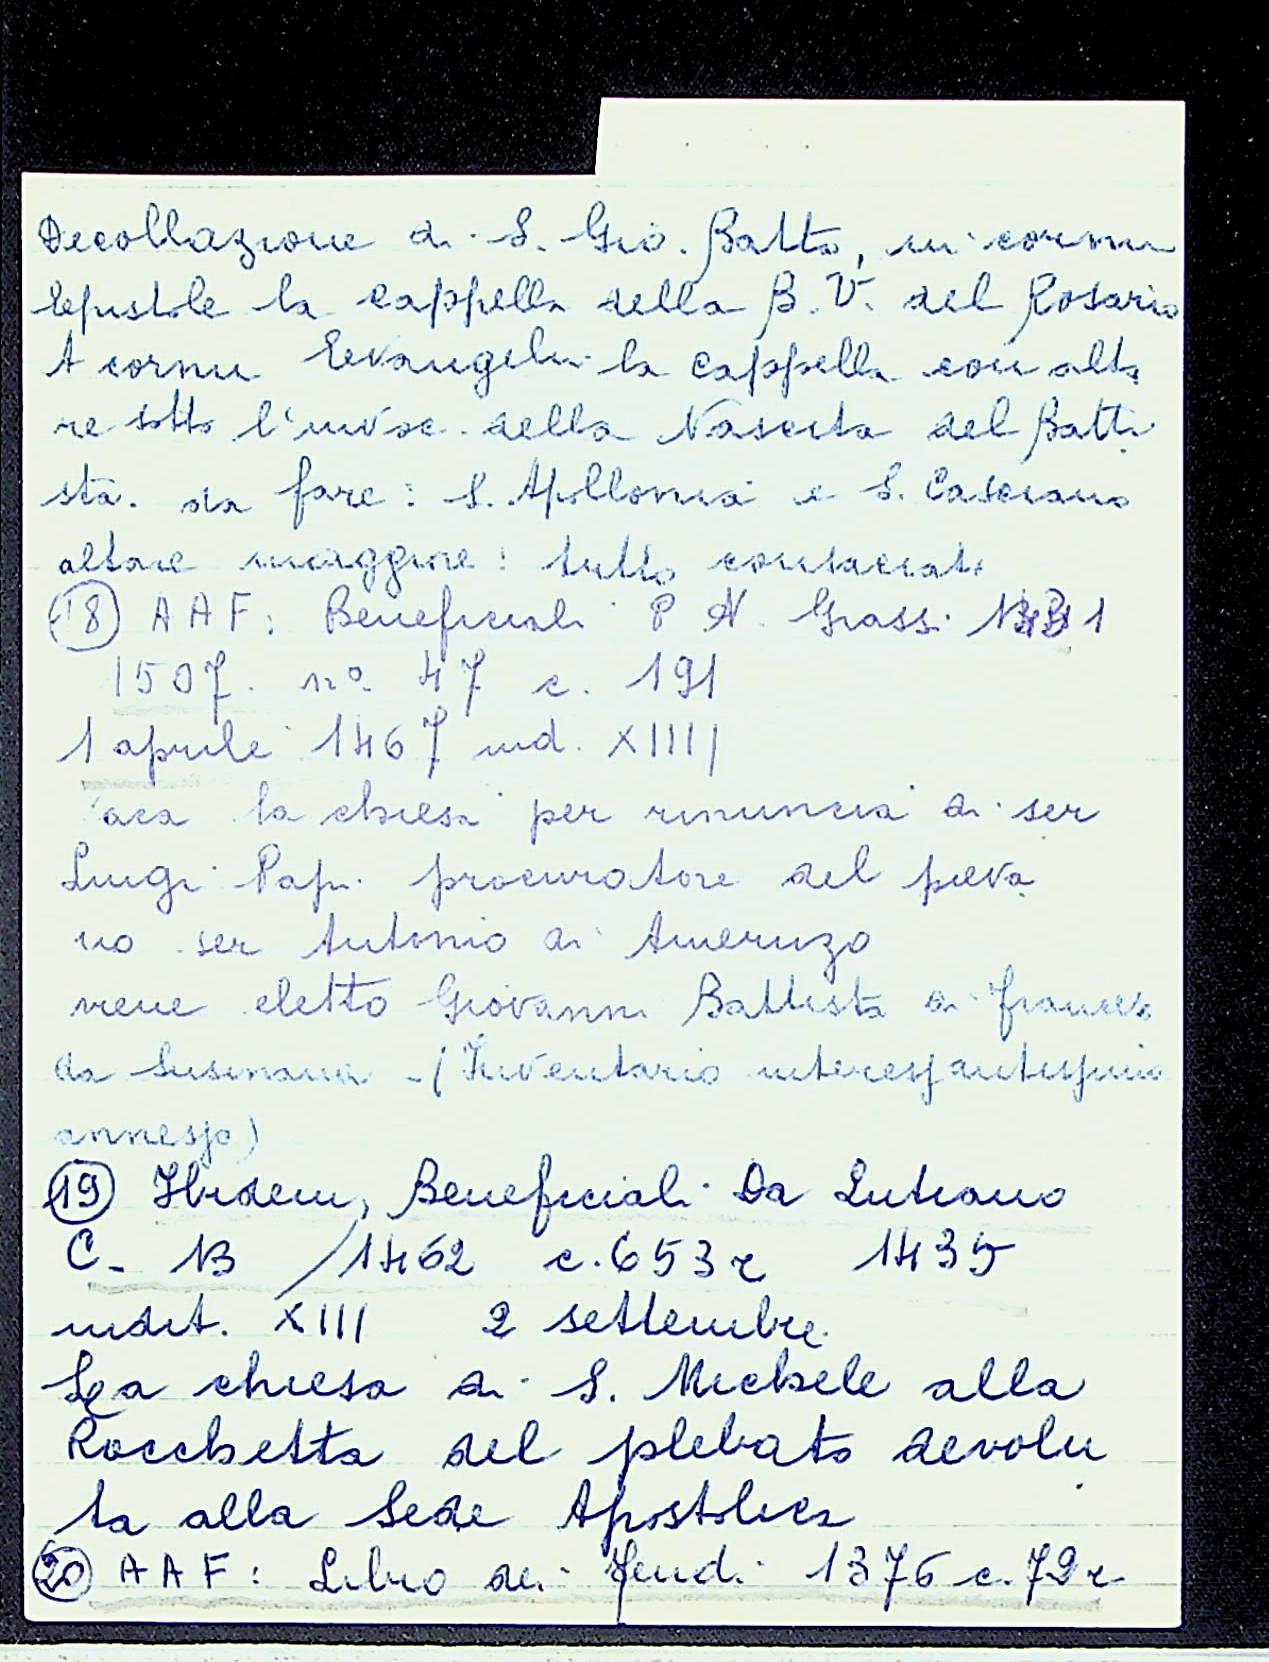 Decollazione di S. Gio. Batta, in cornu
Epistole la cappella della B. V. del Rosario
A cornu Evangelii la cappella con alta
re sotto l'invoc. della Nascita del Batti
sta. da fare: S. Apollonia e S. Casciano
altare maggiore: tutto consacrato
(18) AAF: Beneficiali P. N. Grassi
1507. nº 47 c. 191
1 aprile 1467 ind. XIIII
vaca la chiesa per rinuncia di ser
Luigi Papi procuratore del pieva
no ser Antonio di Amerigo
viene eletto Giovanni Battista di Francesco
da Susinana - (Inventario interessantissimo
annesso)
(19) Ibidem, Beneficiali Da Lutiano
C. B /1462 c. 653 r 1435
indit. XIII 2 settembre
La chiesa di S. Michele alla
Rocchetta del plebato devolu
ta alla Sede Apostolica
(20) AAF: Libro dei Feudi 1376 c. 72 r